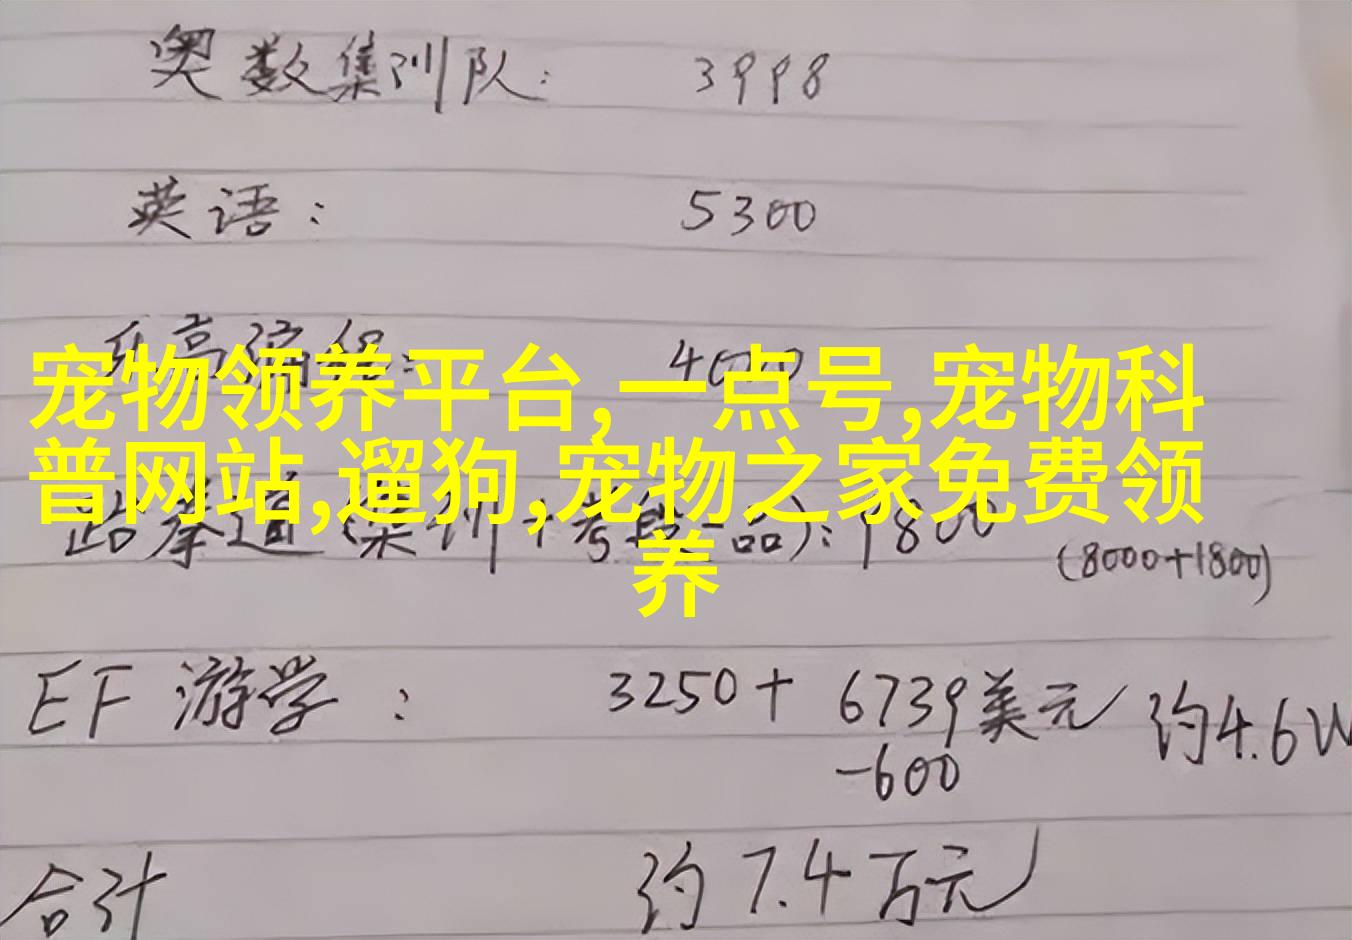 奥数集训队: 3998
英语: 5300
乐高编程: 4000
宠物领养平台,一点号,宠物科
普网站,遛狗,宠物之家免费领
养
跆拳道(集训+考段一品): 9800
(8000+1800)
EF 游学: 3250+ 6739美元 约4.6W
-600
合计 约7.4万元